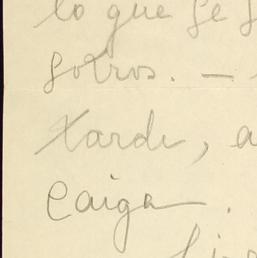 lo que se
sotros. —
tarde, a
caiga.